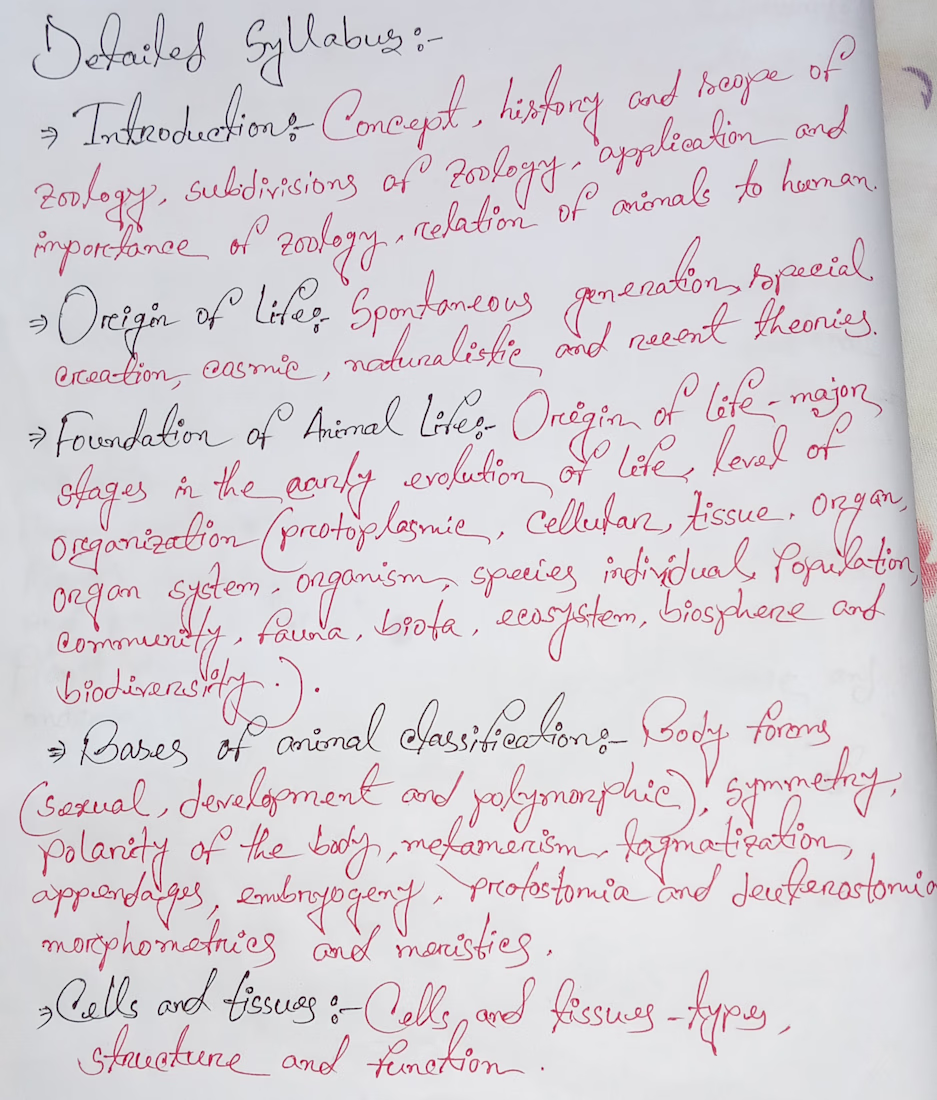 Detailed Syllabus:-
⇒ Introduction:- Concept, history and scope of
zoology, subdivisions of zoology, application and
importance of zoology, relation of animals to human.
⇒ Origin of Life:- Spontaneous generation, special
creation, cosmic, naturalistic and recent theories.
⇒ Foundation of Animal Life:- Origin of life - major
stages in the early evolution of life, level of
organization (protoplasmic, cellular, tissue, organ,
organ system, organism, species individual, Population,
community, fauna, biota, ecosystem, biosphere and
biodiversity.).
⇒ Bases of animal classification:- Body forms
(sexual, development and polymorphic), symmetry,
polarity of the body, metamerism, tagmatization,
appendages, embryogeny, protostomia and deuterostomia
morphometrics and meristics.
⇒ Cells and tissues:- Cells and tissues - types,
structure and function.